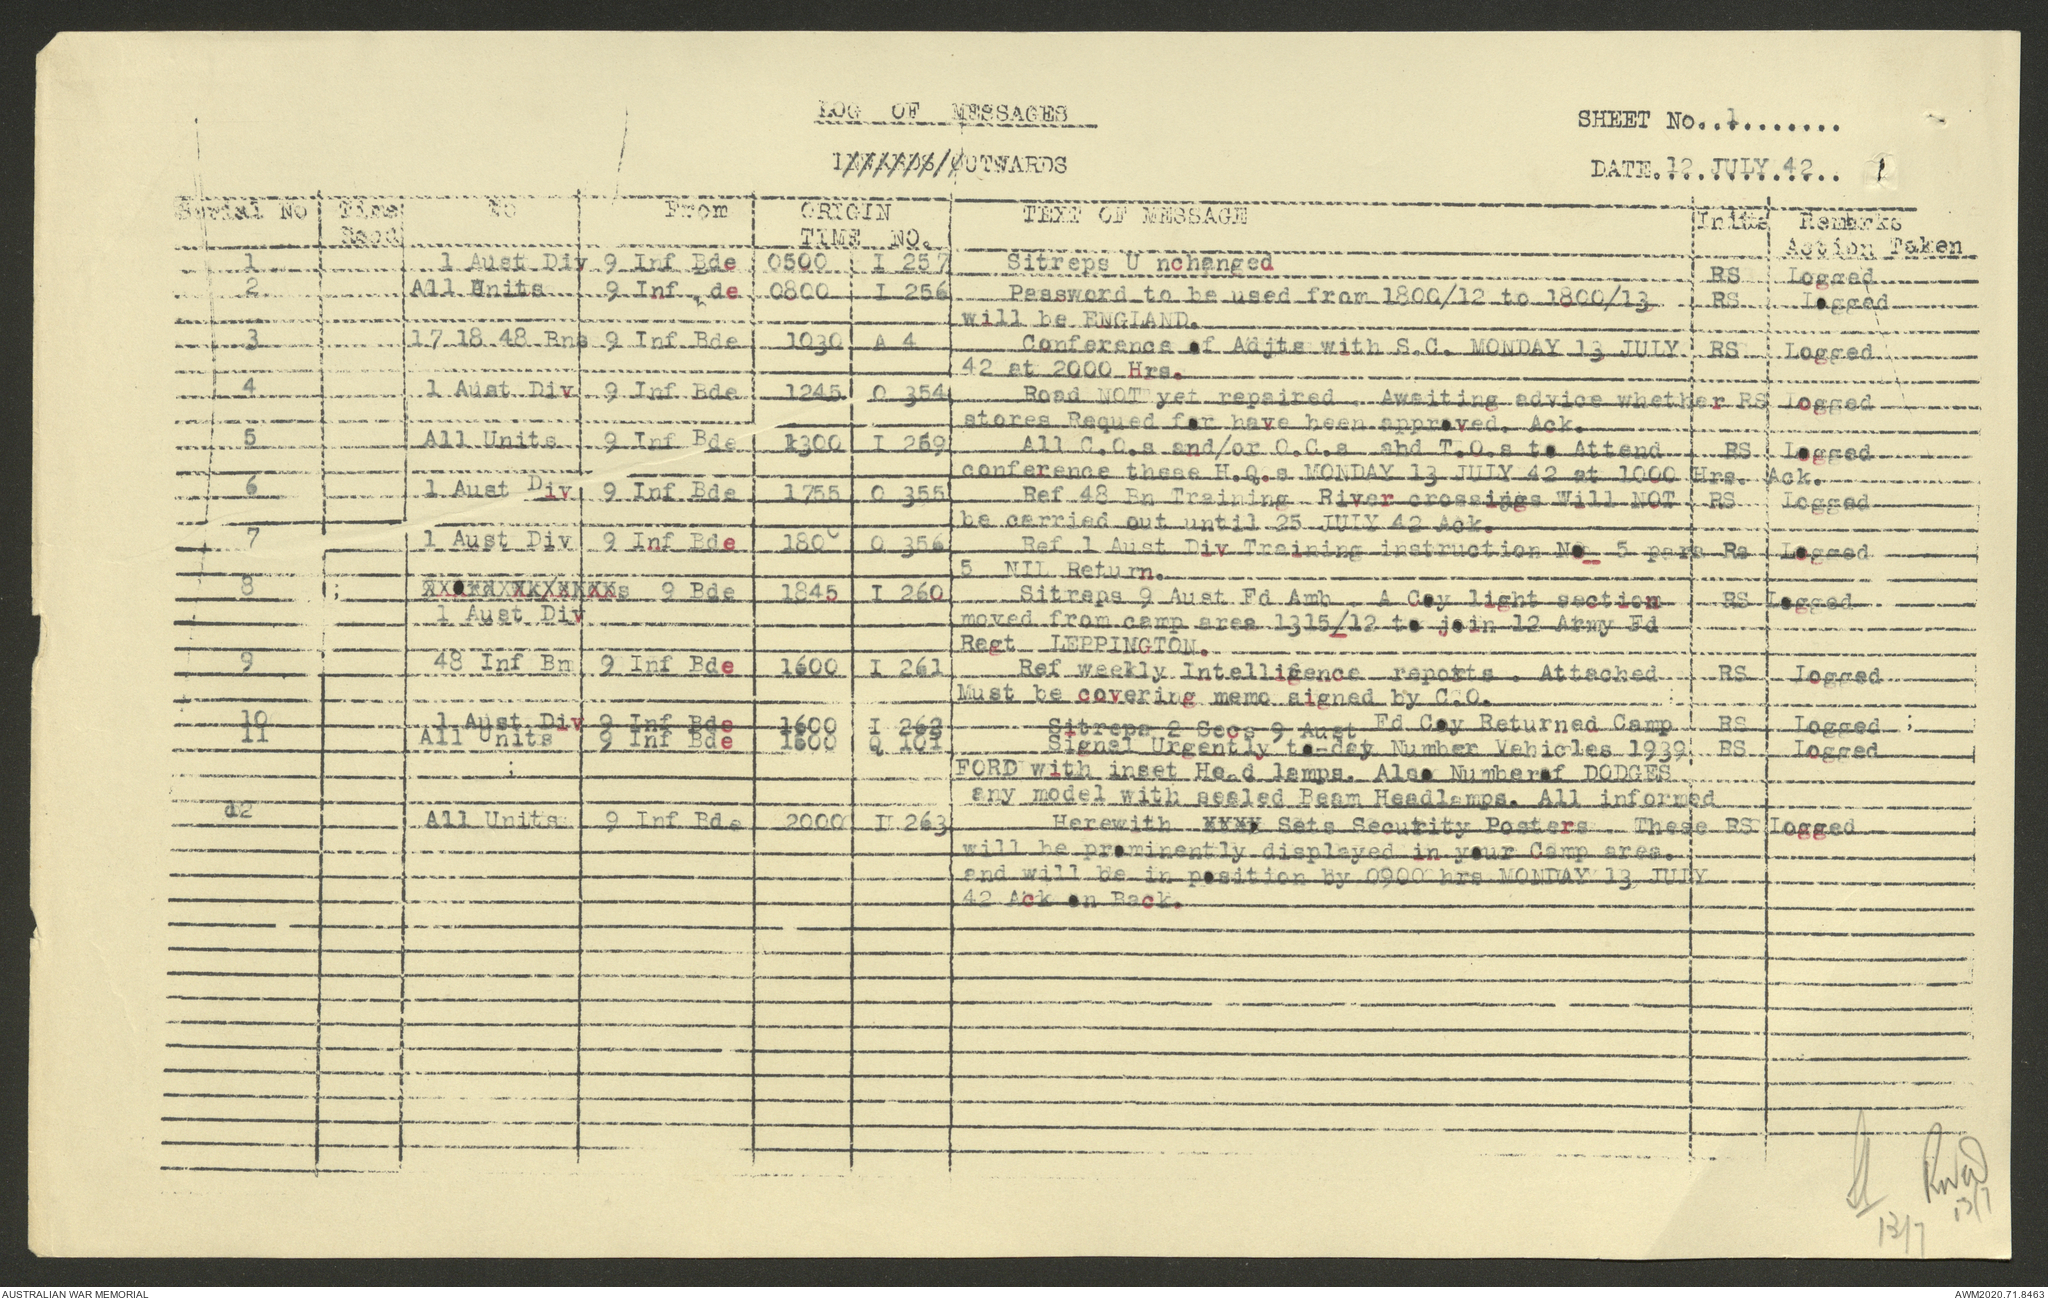 LOG OF MESSAGES
SHEET No..1........
INWARDS/OUTWARDS
DATE.12 JULY 42... 1
Serial No Time Recd To From ORIGIN TIME NO. TEXT OF MESSAGE Initts Remarks Action Taken
1 1 Aust Div 9 Inf Bde 0500 I 257 Sitreps U nchanged RS Logged
2 All Units 9 Inf de 0800 I 256 Password to be used from 1800/12 to 1800/13 RS Logged
will be ENGLAND.
3 17 18 48 Bns 9 Inf Bde 1030 A 4 Conference of Adjts with S.C. MONDAY 13 JULY RS Logged
42 at 2000 Hrs.
4 1 Aust Div 9 Inf Bde 1245 O 354 Road NOT yet repaired . Awaiting advice whether RS Logged
stores Requed for have been approved. Ack.
5 All Units 9 Inf Bde 1300 I 259 All C.O.s and/or O.C.s ahd T.O.s to Attend RS Logged
conference these H.Q.s MONDAY 13 JULY 42 at 1000 Hrs. Ack.
6 1 Aust Div 9 Inf Bde 1755 O 355 Ref 48 Bn Training River crossings Will NOT RS Logged
be carried out until 25 JULY 42 Ack.
7 1 Aust Div 9 Inf Bde 1800 O 356 Ref 1 Aust Div Training instruction No 5 para Rs Logged
5 NIL Return.
8 ; 9 Bde 1845 I 260 Sitreps 9 Aust Fd Amb . A Coy light section RS Logged
1 Aust Div moved from camp area 1315/12 to join 12 Army Fd
Regt LEPPINGTON.
9 48 Inf Bn 9 Inf Bde 1600 I 261 Ref weekly Intelligence reports . Attached RS Logged
Must be covering memo signed by C.O.
10 1 Aust Div 9 Inf Bde 1600 I 262 Sitreps 2 Secs 9 Aust Fd Coy Returned Camp RS Logged ;
11 All Units 9 Inf Bde 1600 Q 101 Signal Urgently to-day Number Vehicles 1939 RS Logged
FORD with inset Head lamps. Also Numberof DODGES
any model with sealed Beam Headlamps. All informed
12 All Units 9 Inf Bde 2000 I 263 Herewith XXXX Sets Security Posters . These RS Logged
will be prominently displayed in your Camp area.
and will be in position by 0900 hrs MONDAY 13 JULY
42 Ack on Back.
13/7
13/7
AUSTRALIAN WAR MEMORIAL
AWM2020.71.8463